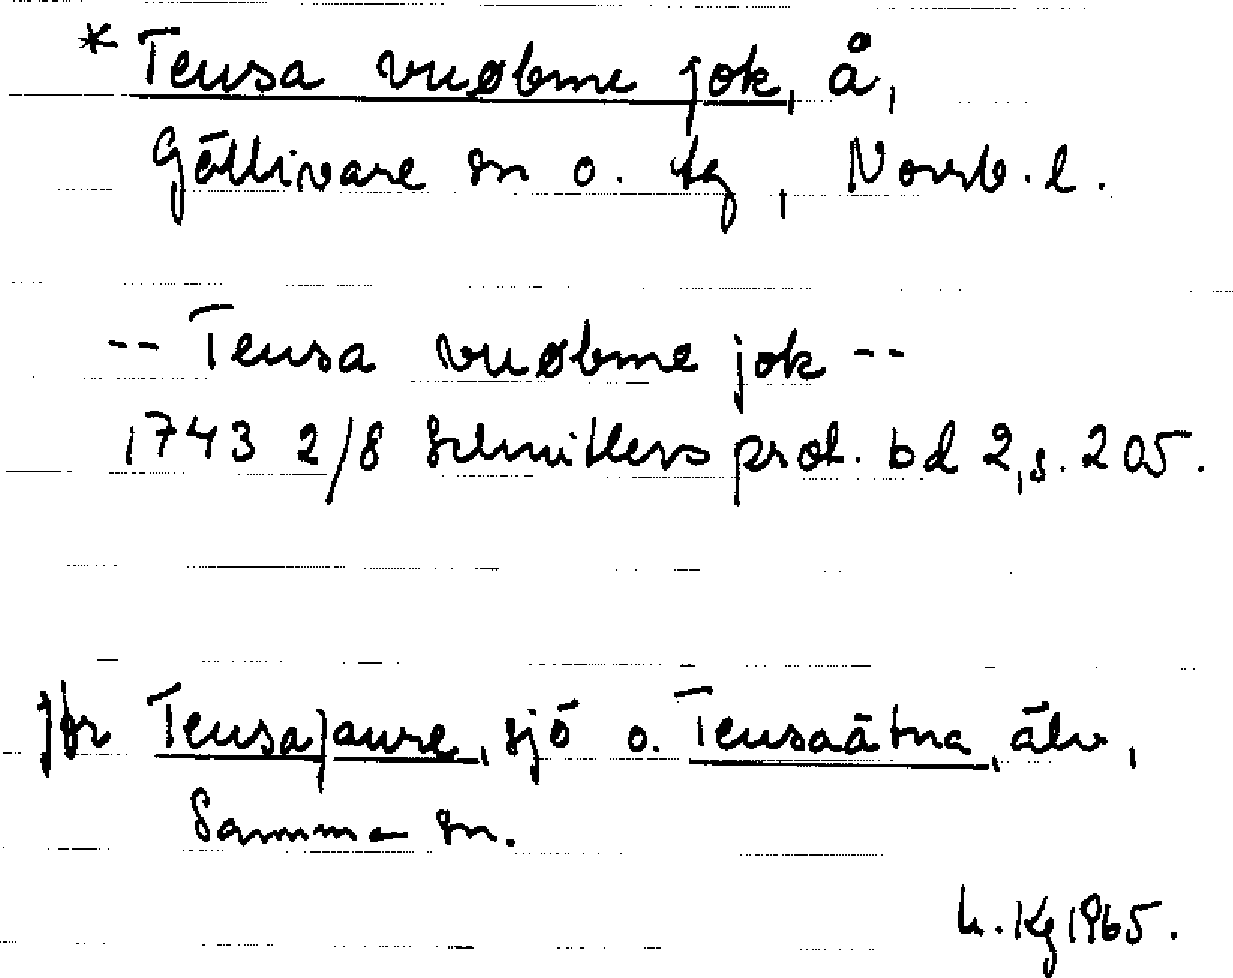 * Teusa vuøbme jok, å,
Gällivare sn o. tg, Norrb. l.
-- Teusa vuøbme jok --
1743 2/8 Schnitlers prot. bd 2, s. 205.
Jfr Teusajaure, sjö o. Teusaätna, älv,
Samma sn.
L. Kg 1965.